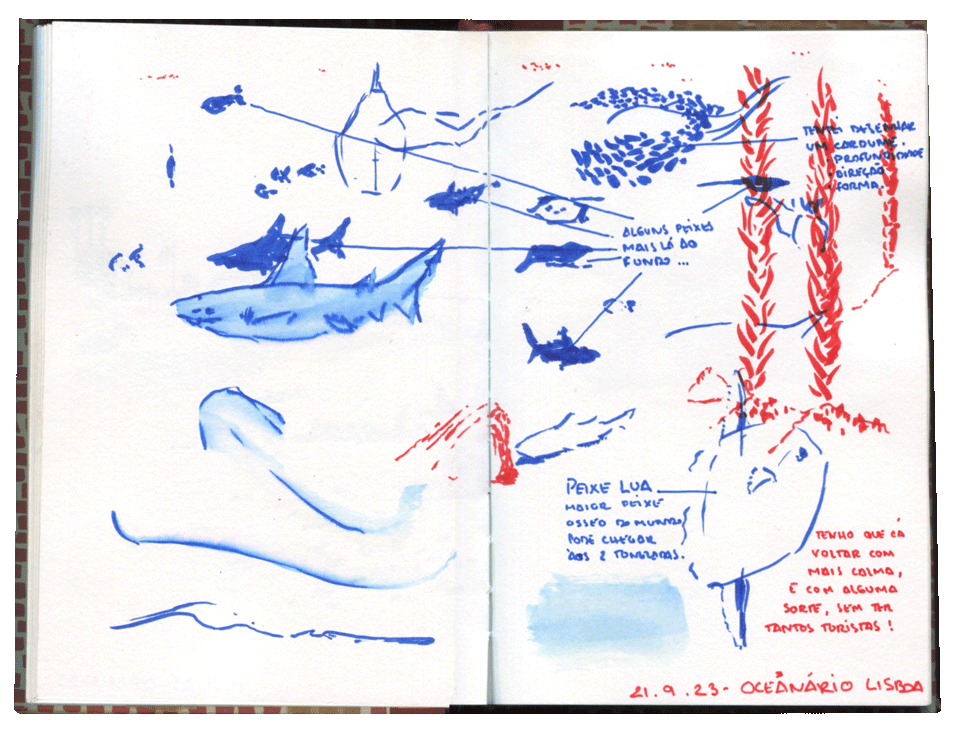 TENTEI DESENHAR
UM CARDUME.
PROFUNDIDADE
DIREÇÃO
FORMA.
ALGUNS PEIXES
MAIS LÁ AO
FUNDO...
PEIXE LUA
MAIOR PEIXE
OSSEO DO MUNDO
PODE CHEGAR
ÀOS 2 TONELADAS.
TENHO QUE CÁ
VOLTAR COM
MAIS CALMA,
E COM ALGUMA
SORTE, SEM TER
TANTOS TURISTAS!
21.9.23- OCEÂNÁRIO LISBOA